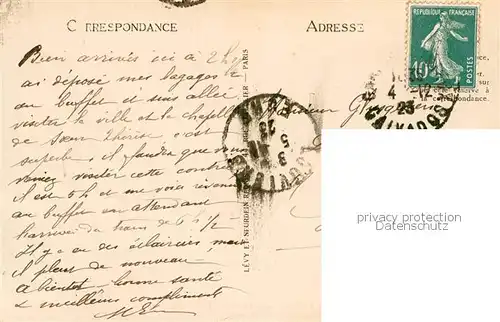 CORRESPONDANCE
ADRESSE
REPUBLIQUE FRANÇAISE
10c
POSTES
Bien arrivés ici à 2h½
ai déposé mes bagages
au buffet et suis allée
visiter la ville et la chapelle
de Sœur Thérèse, c'est
superbe, il faudra que vous
veniez visiter cette contrée
il est 5h et me voici revenue
au buffet en attendant
l'arrivée du train de 6h½
Il y a eu des éclaircies, mais
il pleut de nouveau
A bientôt bonne santé
& meilleurs compliments
Monsieur
LÉVY ET NEURDEIN RÉUNIS
PARIS
CALVADOS
4
23
la correspondance.
privacy protection
Datenschutz